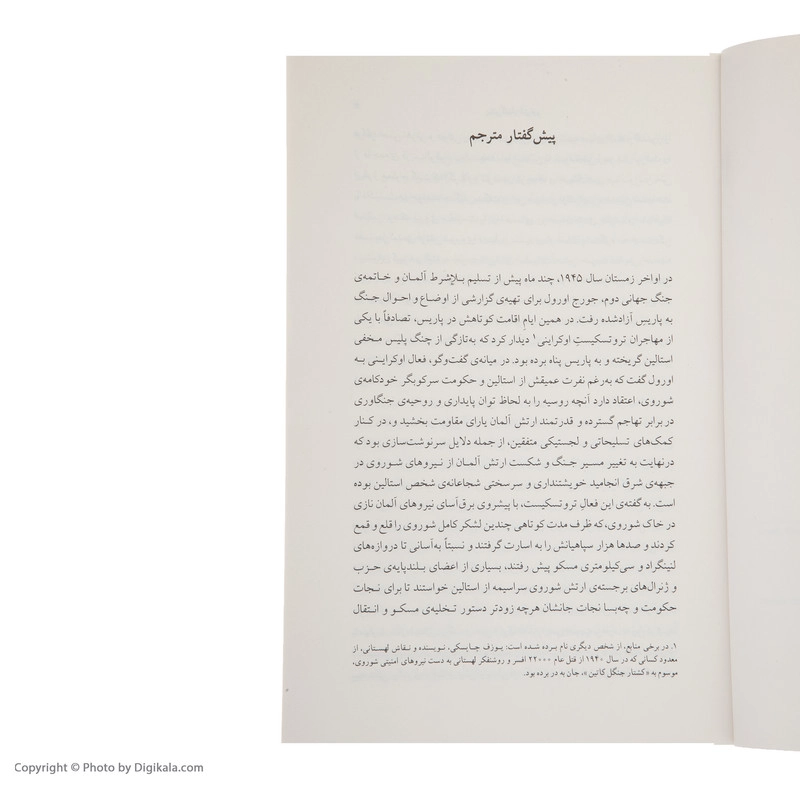 پیش‌گفتار مترجم
در اواخر زمستان سال ۱۹۴۵، چند ماه پیش از تسلیم بلاشرط آلمان و خاتمه‌ی
جنگ جهانی دوم، جورج اورول برای تهیه‌ی گزارشی از اوضاع و احوال جنگ
به پاریسِ آزادشده رفت. در همین ایامِ اقامت کوتاهش در پاریس، تصادفاً با یکی
از مهاجران تروتسکیستِ اوکراینی۱ دیدار کرد که به‌تازگی از چنگ پلیس مخفی
استالین گریخته و به پاریس پناه برده بود. در میانه‌ی گفت‌وگو، فعال اوکراینی به
اورول گفت که به‌رغم نفرت عمیقش از استالین و حکومت سرکوبگر خودکامه‌ی
شوروی، اعتقاد دارد آنچه روسیه را به لحاظ توان پایداری و روحیه‌ی جنگاوری
در برابر تهاجم گسترده و قدرتمند ارتش آلمان یارای مقاومت بخشید و، در کنار
کمک‌های تسلیحاتی و لجستیکی متفقین، از جمله دلایل سرنوشت‌سازی بود که
درنهایت به تغییر مسیر جنگ و شکست ارتش آلمان از نیروهای شوروی در
جبهه‌ی شرق انجامید خویشتنداری و سرسختی شجاعانه‌ی شخص استالین بوده
است. به گفته‌ی این فعالِ تروتسکیست، با پیشروی برق‌آسای نیروهای آلمان نازی
در خاک شوروی، که ظرف مدت کوتاهی چندین لشکر کامل شوروی را قلع و قمع
کردند و صدها هزار سپاهیانش را به اسارت گرفتند و نسبتاً به‌آسانی تا دروازه‌های
لنینگراد و سی‌کیلومتری مسکو پیش رفتند، بسیاری از اعضای بلندپایه‌ی حزب
و ژنرال‌های برجسته‌ی ارتش شوروی سراسیمه از استالین خواستند تا برای نجات
حکومت و چه‌بسا نجات جانشان هرچه زودتر دستور تخلیه‌ی مسکو و انتقال
۱. در برخی منابع، از شخص دیگری نام برده شده است: یوزف چاپسکی، نویسنده و نقاش لهستانی، از
معدود کسانی که در سال ۱۹۴۰ از قتل عام ۲۲۰۰۰ افسر و روشنفکر لهستانی به دست نیروهای امنیتی شوروی،
موسوم به «کشتار جنگل کاتین»، جان به در برده بود.
Copyright © Photo by Digikala.com